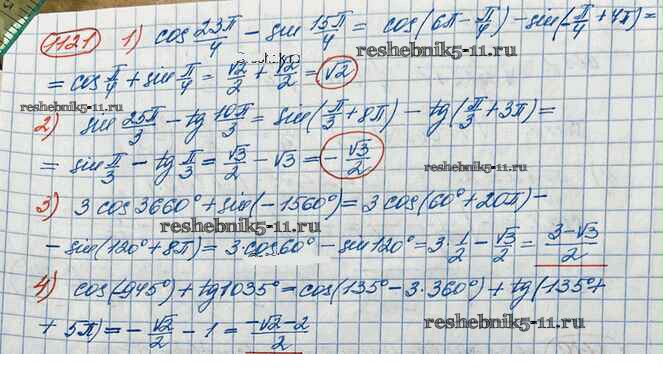 1121 1) cos 23π/4 - sin 15π/4 = cos(6π - π/4) - sin(-π/4 + 4π) =
= cos π/4 + sin π/4 = √2/2 + √2/2 = √2
reshebnik5-11.ru
reshebnik5-11.ru
2) sin 25π/3 - tg 10π/3 = sin(π/3 + 8π) - tg(π/3 + 3π) =
= sin π/3 - tg π/3 = √3/2 - √3 = -√3/2
reshebnik5-11.ru
3) 3 cos 3660° + sin(-1560°) = 3 cos(60° + 20π) -
reshebnik5-11.ru
- sin(120° + 8π) = 3·cos 60° - sin 120° = 3·1/2 - √3/2 = 3-√3/2
4) cos(-945°) + tg 1035° = cos(135° - 3·360°) + tg(135° +
+ 5π) = -√2/2 - 1 = -√2-2/2
reshebnik5-11.ru